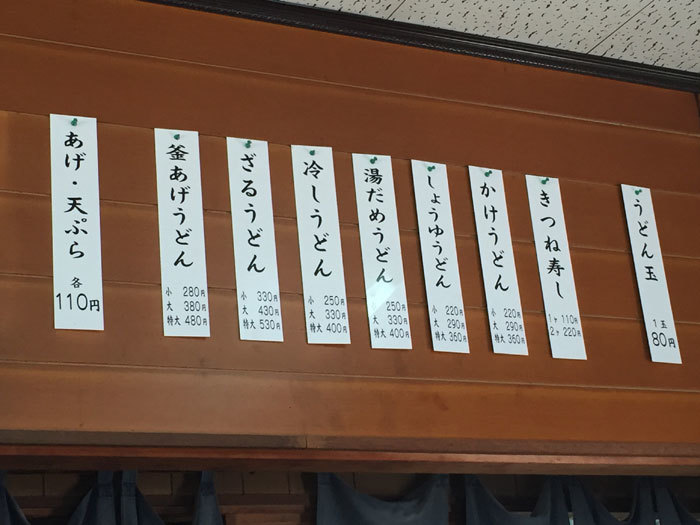 うどん玉
1玉
80円
きつね寿し
1ヶ 110円
2ヶ 220円
かけうどん
小 220円
大 290円
特大 360円
しょうゆうどん
小 220円
大 290円
特大 360円
湯だめうどん
250円
大 330円
特大 400円
冷しうどん
小 250円
大 330円
特大 400円
ざるうどん
小 330円
大 430円
特大 530円
釜あげうどん
小 280円
大 380円
特大 480円
あげ・天ぷら
各
110円